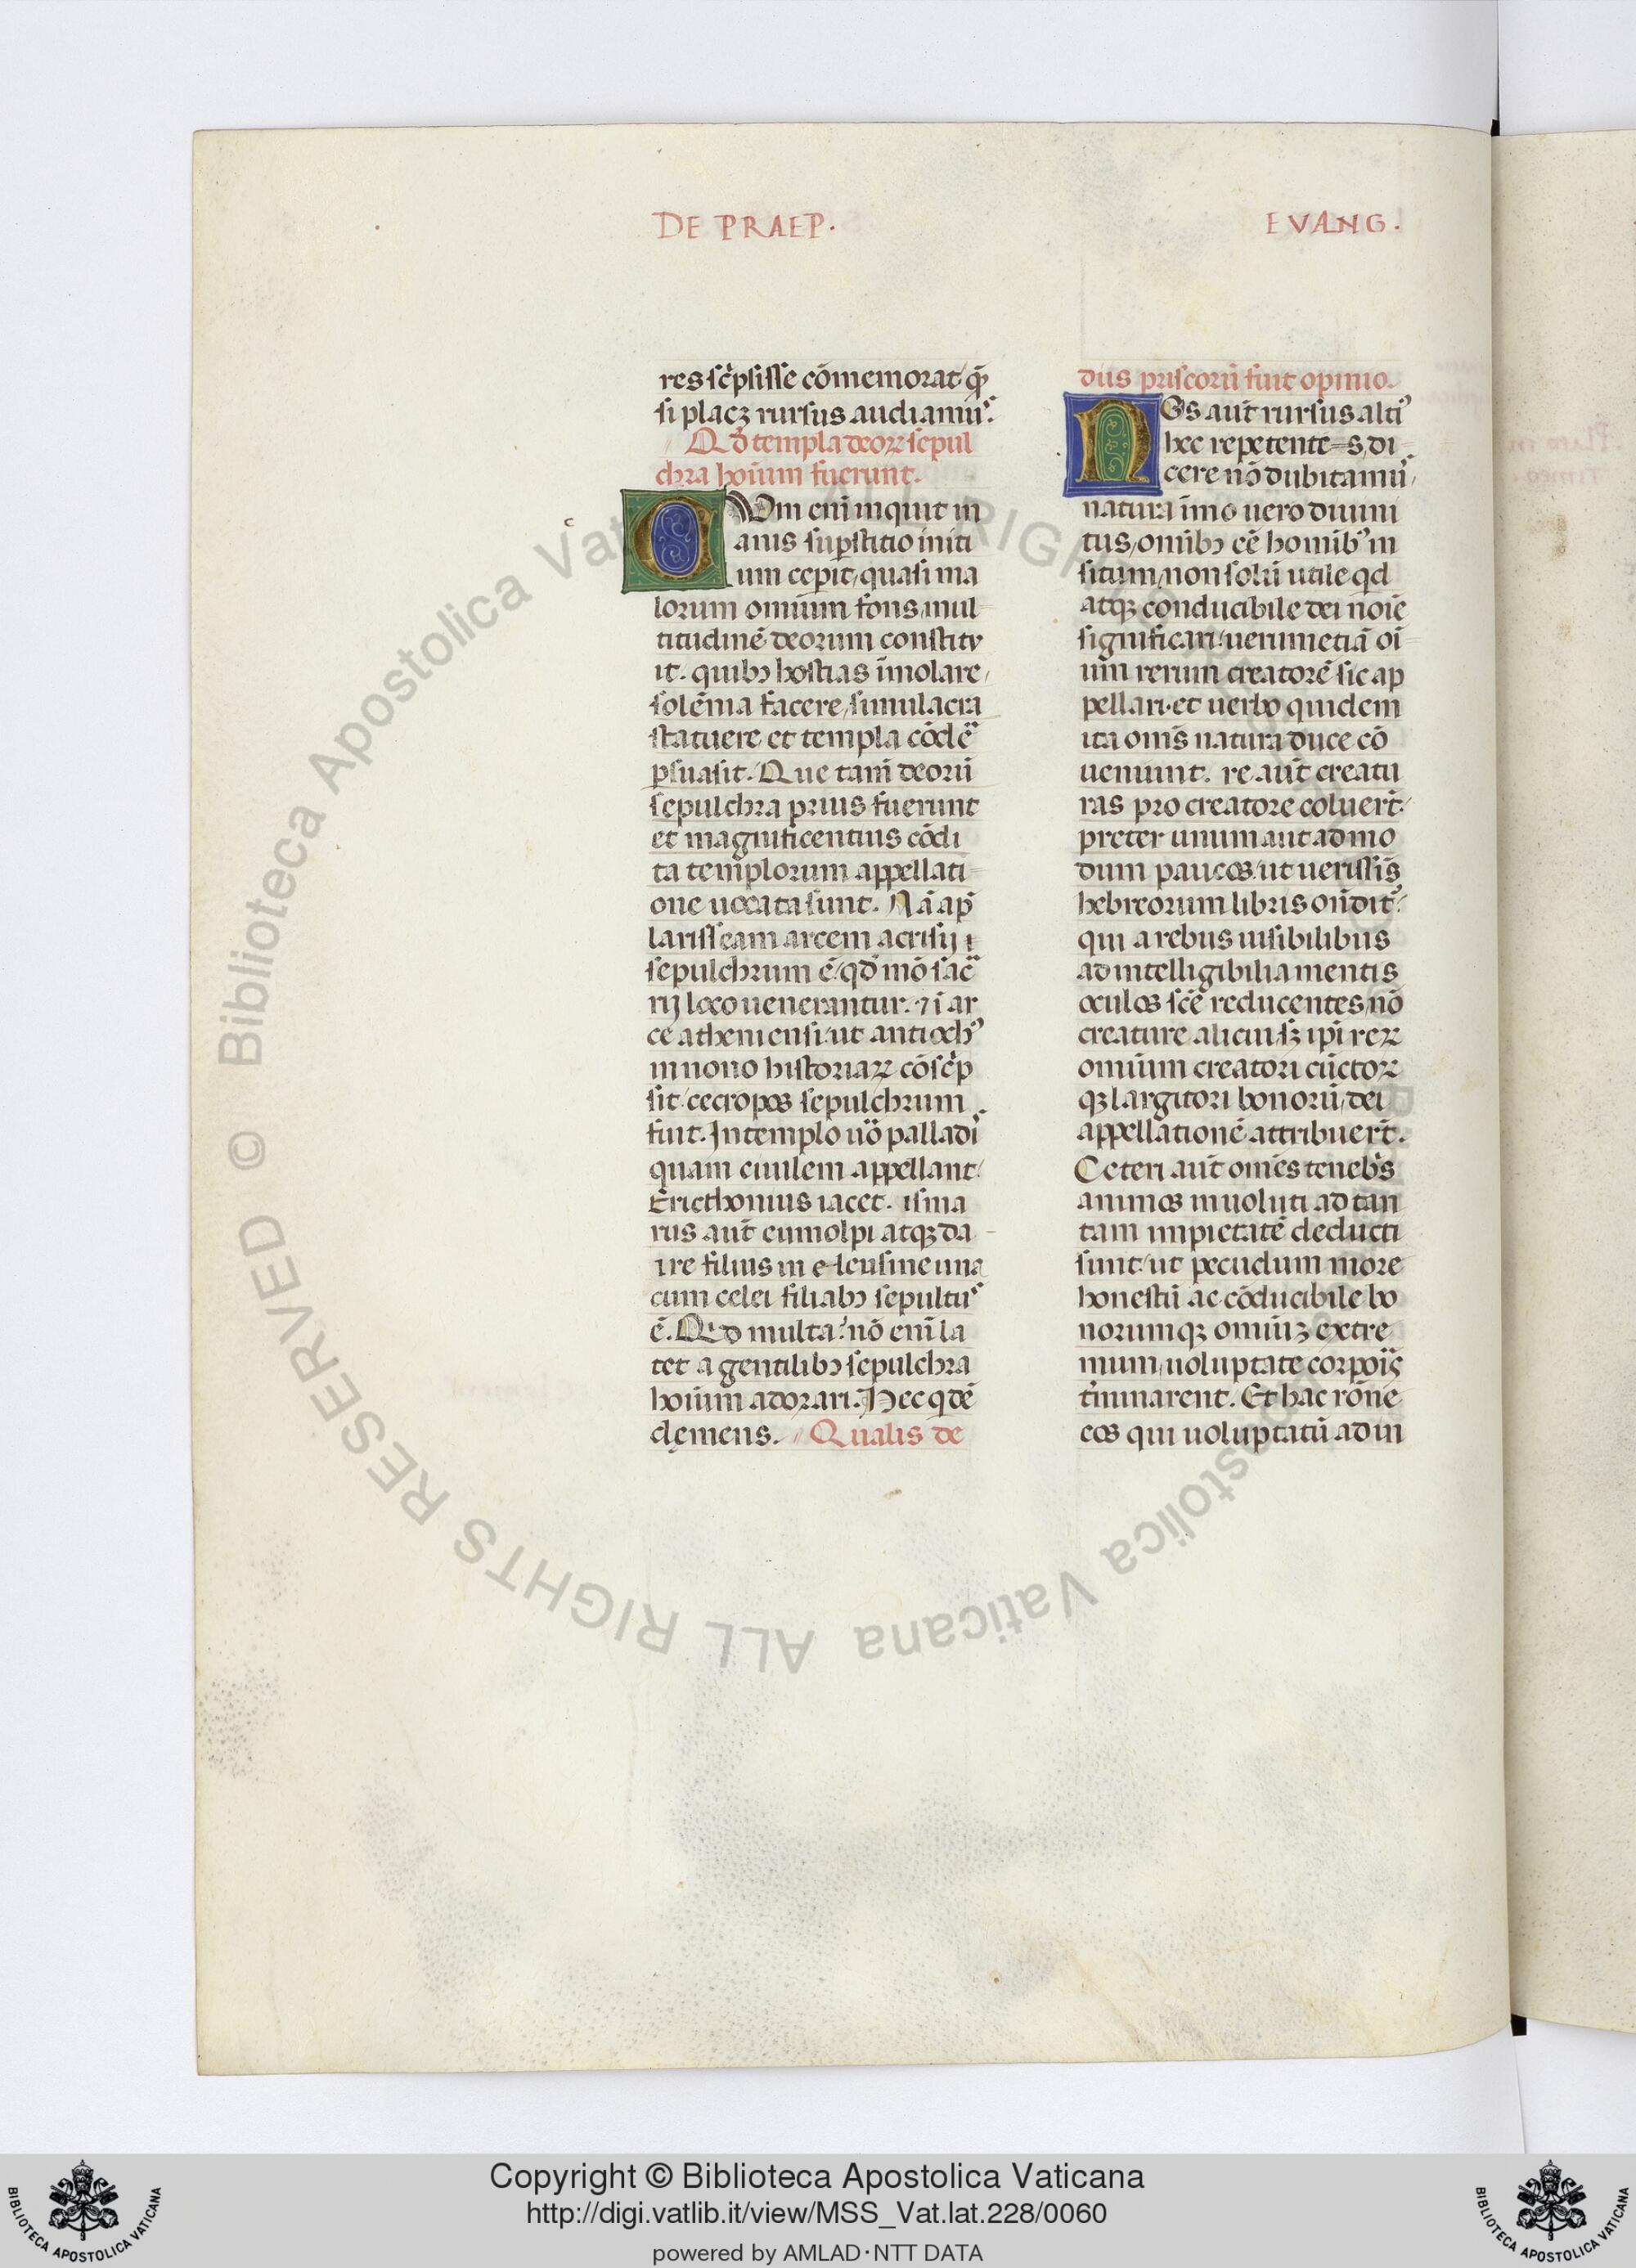 DE PRAEP.
EVANG.
res sc̄psisse cōmemorat / q̄
si placꝫ rursus audiamus.
Qđ templa deoꝝ sepul
chra hoīum fuerunt.
c
CVm eni inquit in
anis suꝑstitio initi
um cepit, quasi ma
lorum omnium fons, mul
titudinē deorum constitv
it. quibꝫ hostias īmolare,
solēnia facere, simulacra
statuere et templa cōdere
ꝑsuasit. Que tam̄ deorū
sepulchra prius fuerunt
et magnificentius cōdi
ta templorum appellati
one uocata sunt. Nā ap̄
larisseam arcem acrisij
sepulchrum ē / qđ mō sac̄
rij loco uenerantur. ⁊ ī ar
ce atheniensi ut antiochꝰ
in nono historiaꝝ cōsc̄p
sit / cecropos sepulchrum
fuit. In templo uo palladis
quam ciuilem appellant /
Ericthonius iacet. isma
rus aut̄ eumolpi atqꝫ da
ire filius in eleusine una
cum celei filiabꝫ sepultus
ē. Qd multa? nō eni la
tet a gentilibꝫ sepulchra
hoīum adorari. Hec qdē
clemens. Qualis de
dus priscorū fuit opinio.
NOs aut̄ rursus altiꝰ
hec repetentes, di
cere nō dubitamus,
natura īmo uero diuini
tus, omibꝫ eē homibꝰ in
situm, non solū utile qd
atqꝫ conducibile dei noīe
significari / uerumetiā oī
um rerum creatorē sic ap
pellari. et uerbo quidem
ita om̄s natura duce cō
ueniunt. re aut̄ creatu
ras pro creatore coluert̄.
preter unum aut admo
dum paucos / ut uerissīs
hebreorum libris ondit̄
qui a rebus uisibilibus
ad intelligibilia mentis
oculos scē reducentes, nō
creature alicui, sꝫ ipi reꝝ
omnium creatori cūctoꝝ
qꝫ largitori bonorū, dei
appellationē attribuert̄.
Ceteri aut̄ omēs tenebs
animos inuoluti ad tan
tam impietatē deducti
sunt / ut pecudum more
honestū ac cōducibile bo
norumqꝫ omniū extre
mum, uoluptate corpois
tīminarent. Et hac rōne
eos qui uoluptatū ad in
Copyright © Biblioteca Apostolica Vaticana
http://digi.vatlib.it/view/MSS_Vat.lat.228/0060
powered by AMLAD·NTT DATA
BIBLIOTECA APOSTOLICA VATICANA
BIBLIOTECA APOSTOLICA VATICANA
© Biblioteca Apostolica Vaticana ALL RIGHTS RESERVED